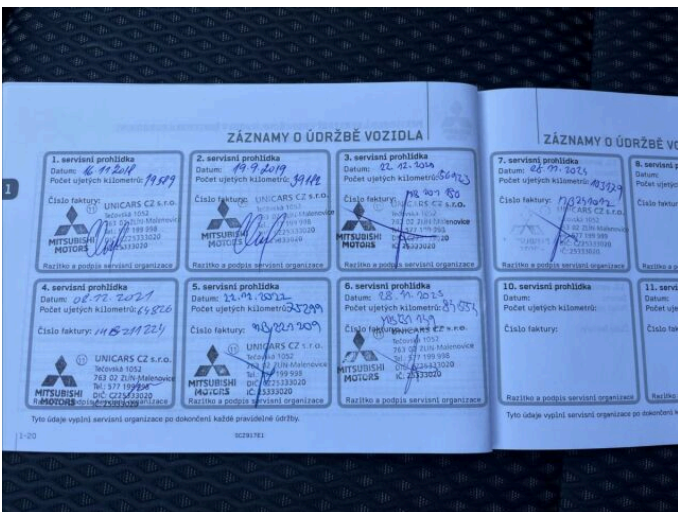 ZÁZNAMY O ÚDRŽBĚ VOZIDLA
1
1. servisní prohlídka
Datum: 16.11.2018
Počet ujetých kilometrů: 19589
Číslo faktury:
UNICARS CZ s.r.o.
Tečovská 1052
763 02 ZLÍN-Malenovice
MITSUBISHI
MOTORS
Razítko a podpis servisní organizace
2. servisní prohlídka
Datum: 19.9.2019
Počet ujetých kilometrů:
Číslo faktury:
UNICARS CZ s.r.o.
Tečovská 1052
MITSUBISHI
MOTORS
Razítko a podpis servisní organizace
3. servisní prohlídka
Datum: 22.12.2020
Počet ujetých kilometrů:
Číslo faktury:
UNICARS CZ s.r.o.
MITSUBISHI
MOTORS
Razítko a podpis servisní organizace
4. servisní prohlídka
Datum: 08.12.2021
Počet ujetých kilometrů: 64826
Číslo faktury:
11 UNICARS CZ s.r.o.
Tečovská 1052
763 02 ZLÍN-Malenovice
Tel.: 577 199 998
DIČ: CZ25333020
IČ: 25333020
MITSUBISHI
MOTORS
Razítko a podpis servisní organizace
5. servisní prohlídka
Datum:
Počet ujetých kilometrů: 75299
Číslo faktury:
11 UNICARS CZ s.r.o.
Tečovská 1052
763 02 ZLÍN-Malenovice
Tel.: 577 199 998
DIČ: CZ25333020
IČ: 25333020
MITSUBISHI
MOTORS
Razítko a podpis servisní organizace
6. servisní prohlídka
Datum: 28.11.2023
Počet ujetých kilometrů:
Číslo faktury:
11 UNICARS CZ s.r.o.
Tečovská 1052
763 02 ZLÍN-Malenovice
Tel.: 577 199 998
DIČ: CZ25333020
IČ: 25333020
MITSUBISHI
MOTORS
Razítko a podpis servisní organizace
Tyto údaje vyplní servisní organizace po dokončení každé pravidelné údržby.
1-20
SC2917E1
ZÁZNAMY O ÚDRŽBĚ VO
7. servisní prohlídka
Datum:
Počet ujetých kilometrů:
Číslo faktury:
UNICARS CZ s.r.o.
MITSUBISHI
MOTORS
Razítko a podpis servisní organizace
8. servisní p
Datum:
Počet ujetýc
Číslo faktur
Razítko a
10. servisní prohlídka
Datum:
Počet ujetých kilometrů:
Číslo faktury:
Razítko a podpis servisní organizace
11. servi
Datum:
Počet uje
Číslo fak
Razítko
Tyto údaje vyplní servisní organizace po dokončení k